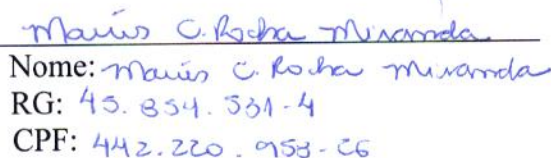 Mariis C. Rocha Miranda
Nome: Mariis C. Rocha Miranda
RG: 45.854.531-4
CPF: 442.220.958-26